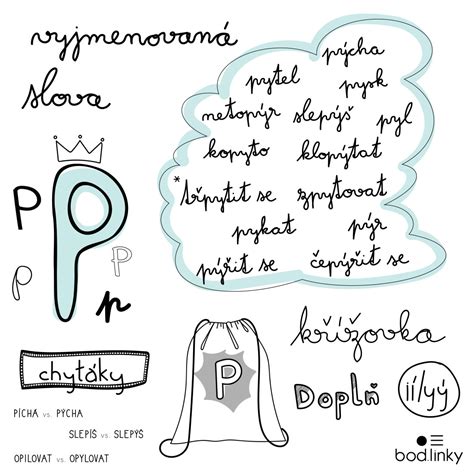 vyjmenovaná
slova
pýcha
pytel pysk
netopýr slepýš pyl
kopyto klopýtat
*třpytit se zpytovat
pykat pýr
pýřit se čepýřit se
P P
P P
p
křížovka
P
chytáky
Doplň ií/yý
PÍCHA vs. PÝCHA
SLEPÍŠ vs. SLEPÝŠ
OPILOVAT vs. OPYLOVAT
bod.linky